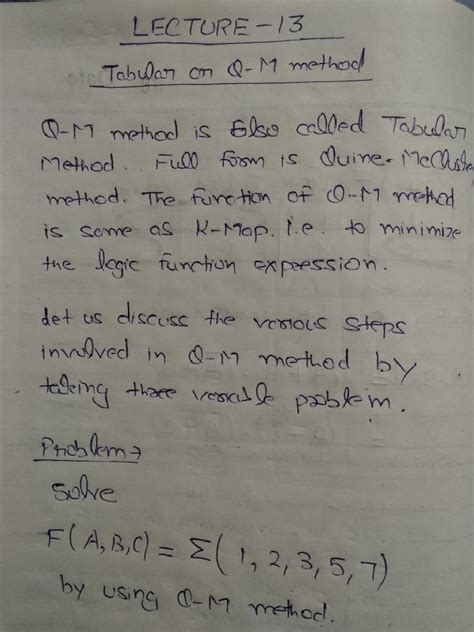 LECTURE-13
Tabular or Q-M method
Q-M method is Also called Tabular
Method. Full form is Quine-McCluske
method. The function of Q-M method
is same as K-Map. i.e. to minimize
the logic function expression.
Let us discuss the various steps
involved in Q-M method by
taking three variable problem.
Problem→
Solve
F(A,B,C) = Σ(1,2,3,5,7)
by using Q-M method.